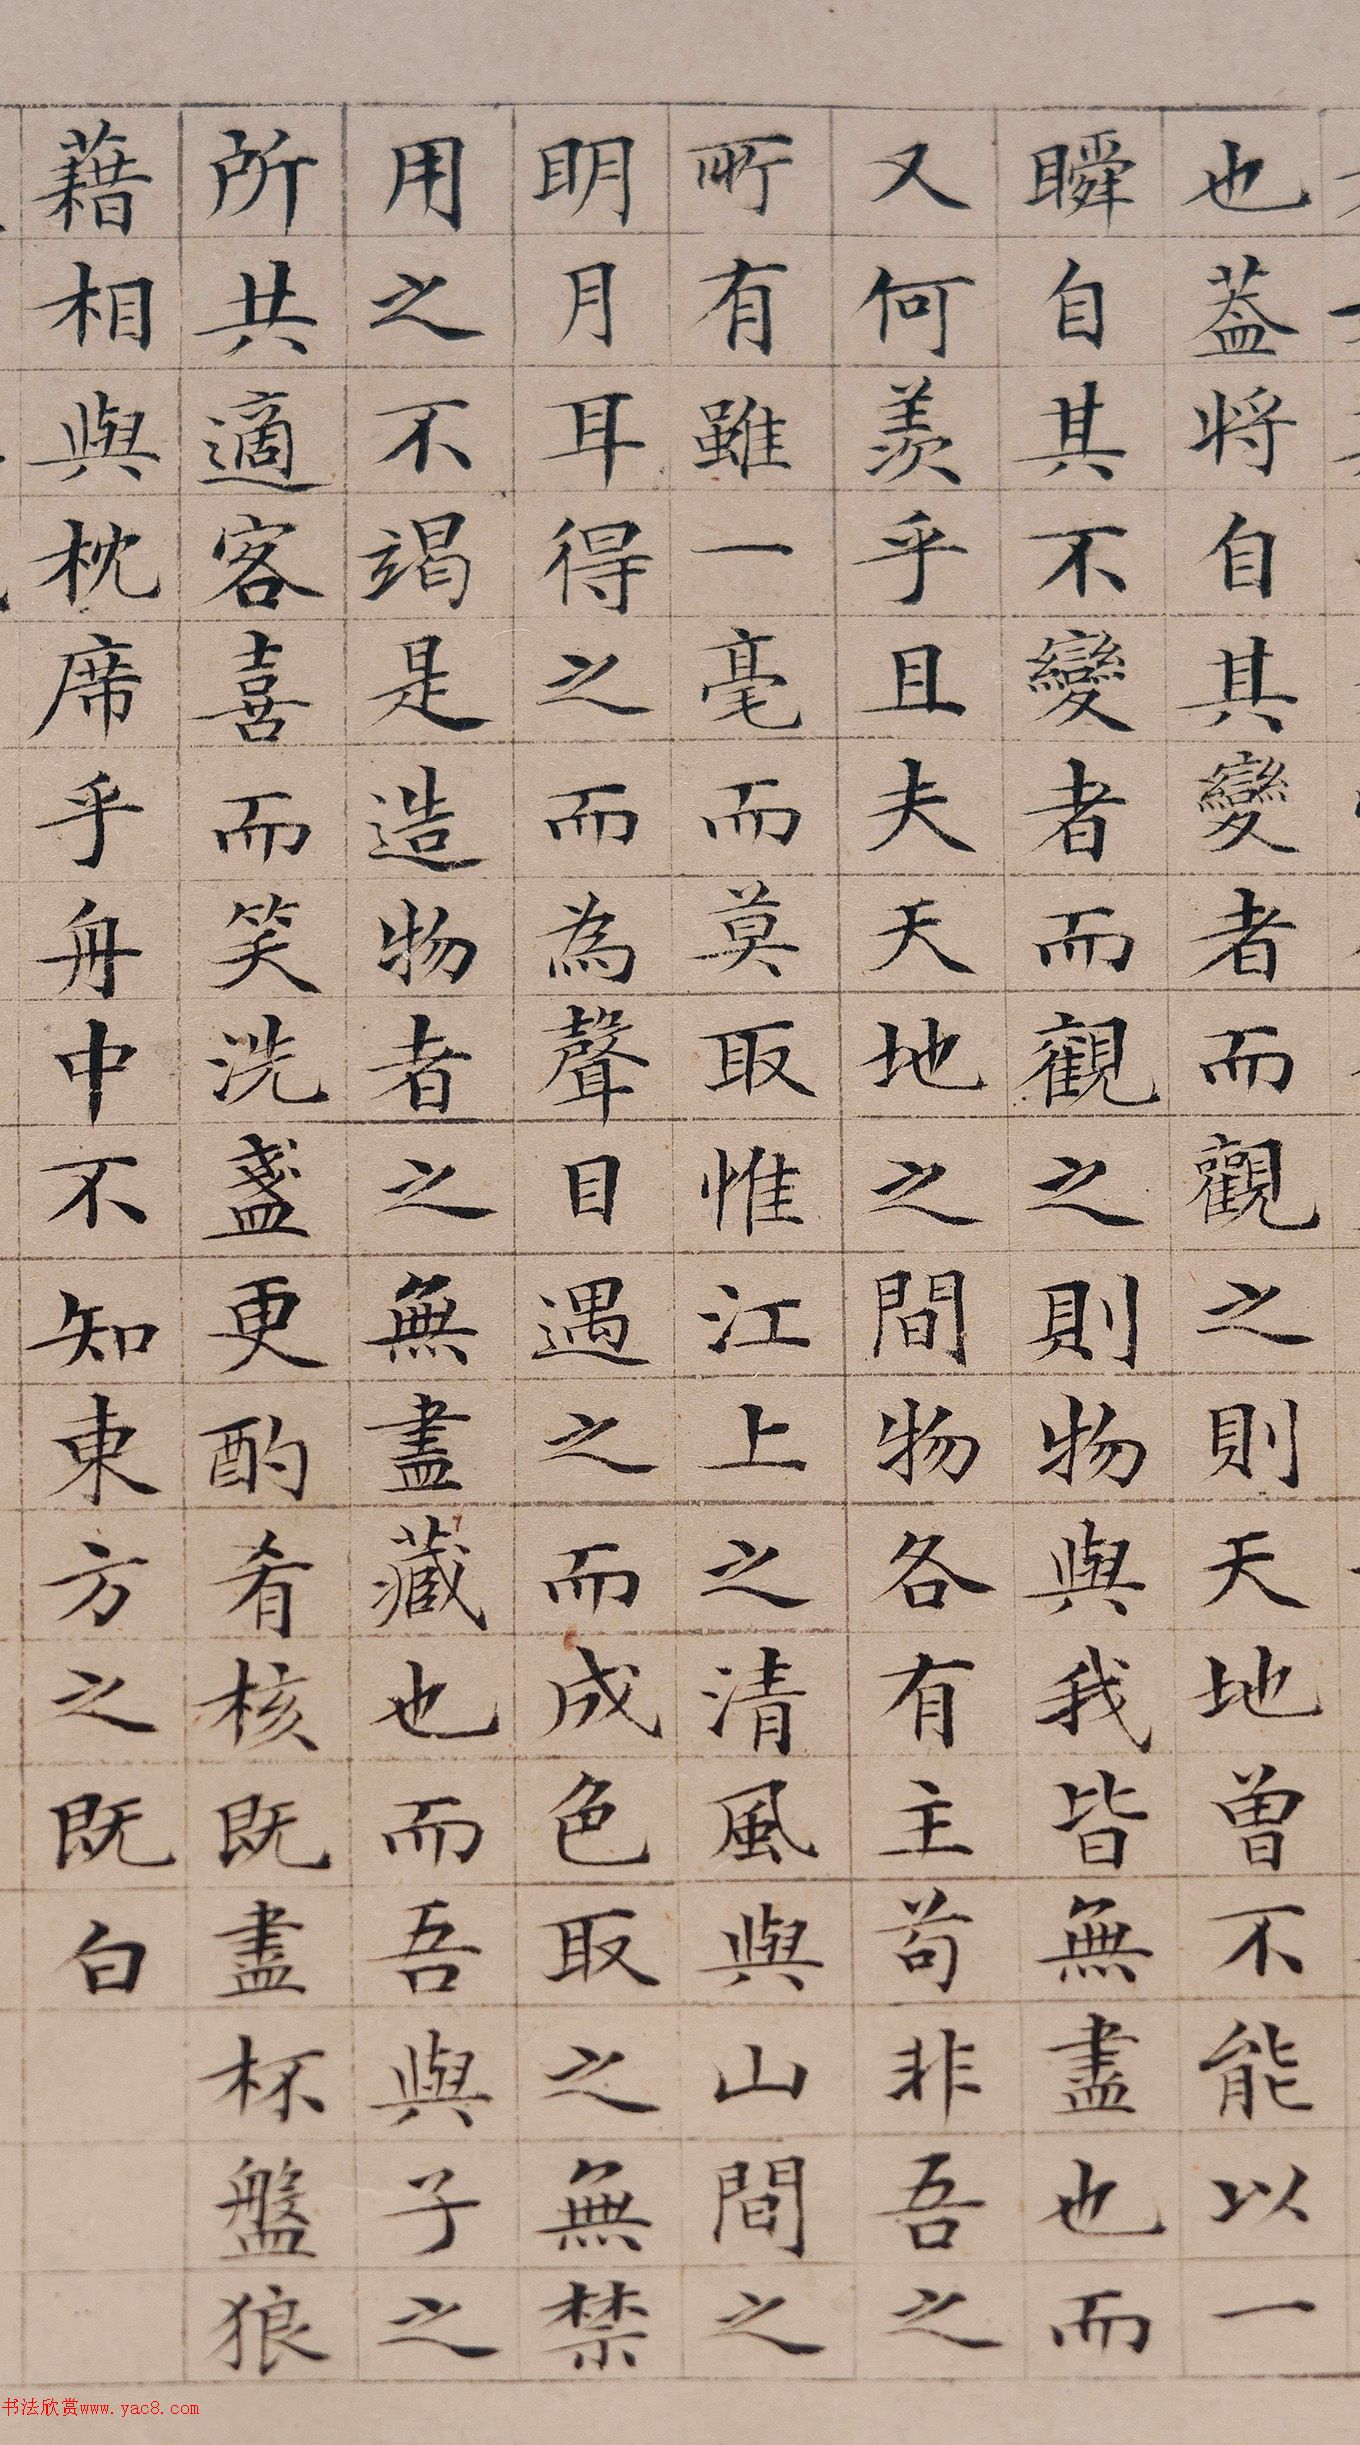 也蓋将自其變者而觀之則天地曽不能以一
瞬自其不變者而觀之則物與我皆無盡也而
又何羨乎且夫天地之間物各有主苟非吾之
所有雖一毫而莫取惟江上之清風與山間之
明月耳得之而為聲目遇之而成色取之無禁
用之不竭是造物者之無盡藏也而吾與子之
所共適客喜而笑洗盞更酌肴核既盡杯盤狼
藉相與枕席乎舟中不知東方之既白
书法欣赏www.yac8.com